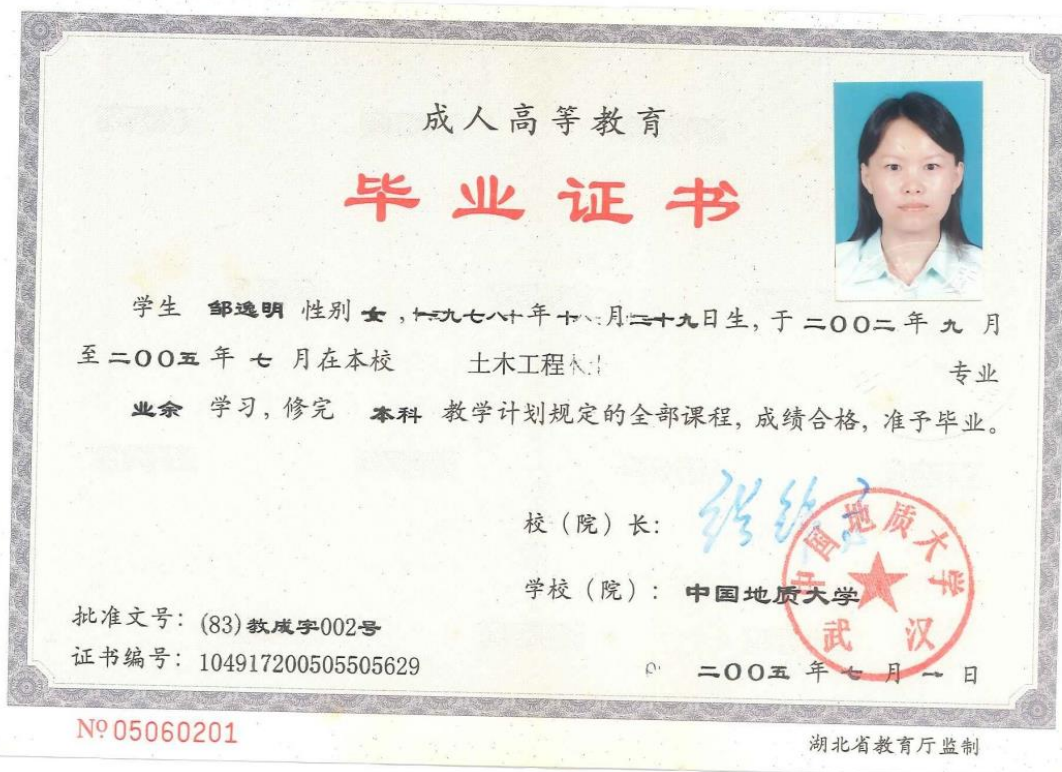 成人高等教育
毕业证书
学生 邹逸明 性别 女，一九七八年十 月二十九日生，于二〇〇二年 九 月
至二〇〇五 年 七 月在本校 土木工程 专业
业余 学习，修完 本科 教学计划规定的全部课程，成绩合格，准予毕业。
校（院）长：
学校（院）：中国地质大学
中国地质大学
武汉
批准文号：(83)教成字002号
证书编号：104917200505505629
二〇〇五 年 七 月 一 日
№ 05060201
湖北省教育厅监制